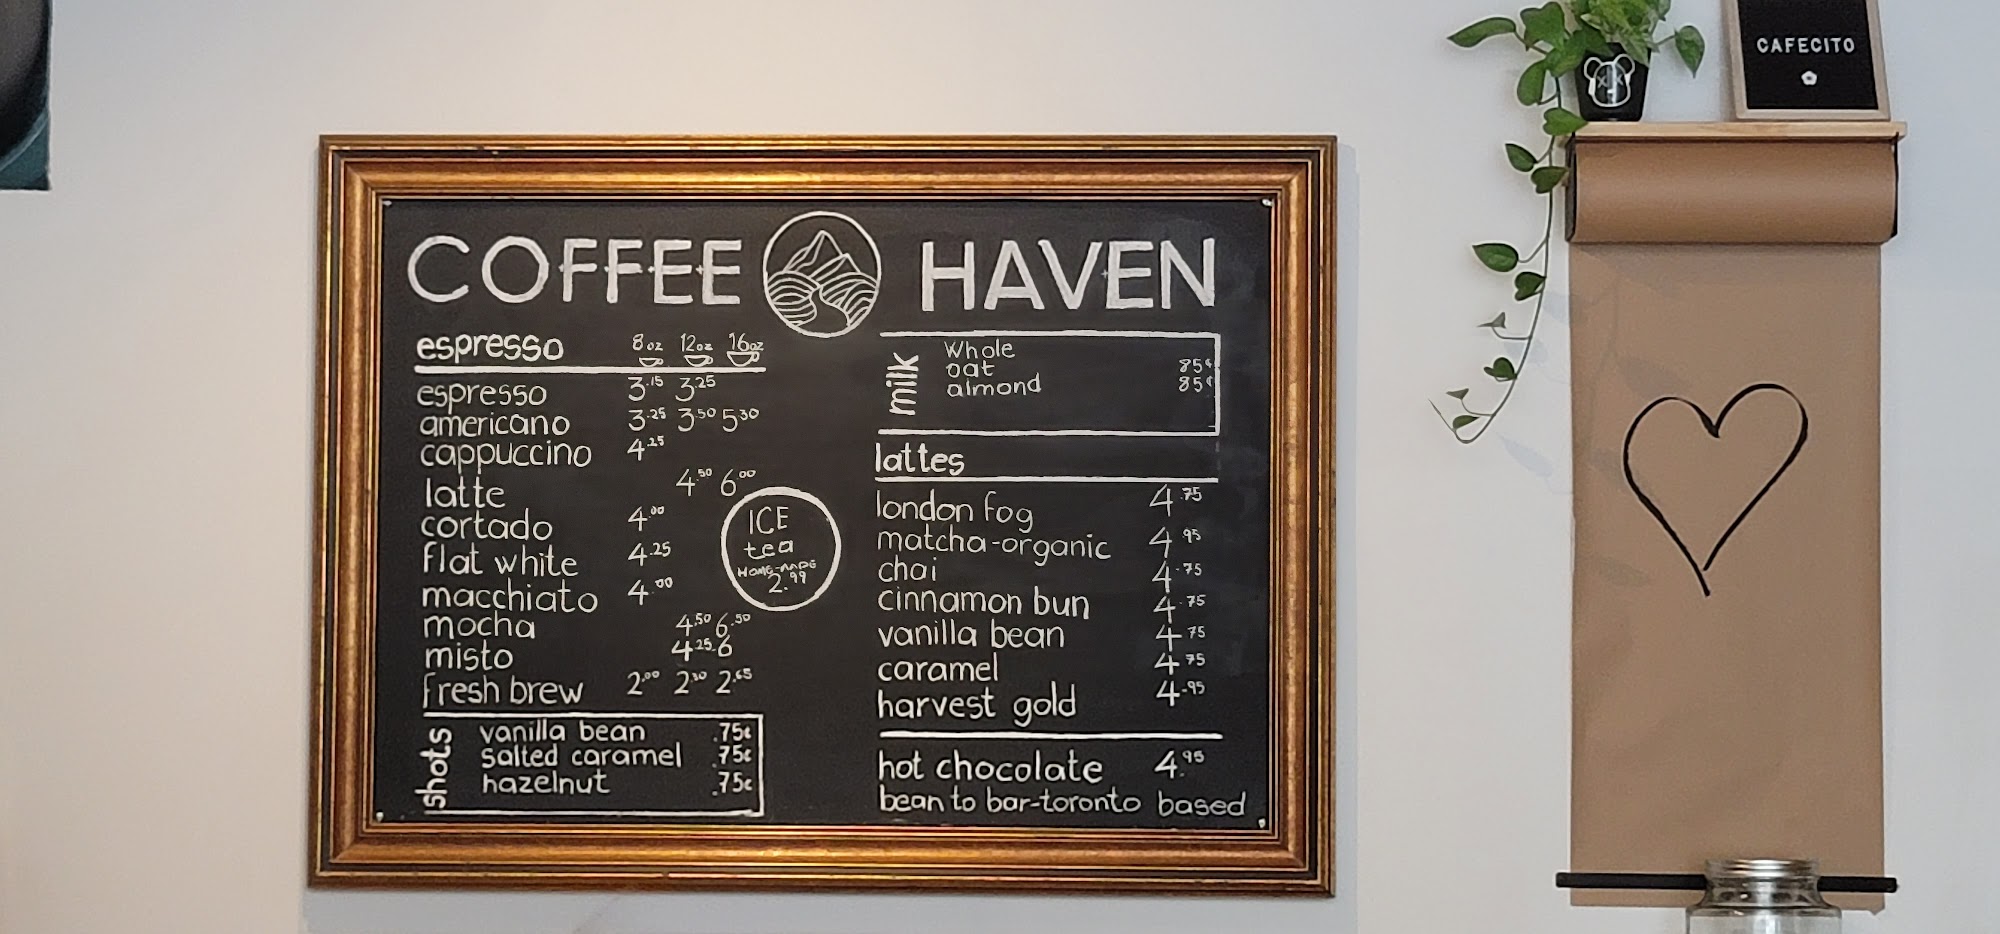 CAFECITO
COFFEE HAVEN
espresso 8oz 12oz 16oz
espresso 3.15 3.25
americano 3.25 3.50 5.30
cappuccino 4.25
latte 4.50 6.00
cortado 4.00
flat white 4.25
macchiato 4.00
mocha 4.50 6.50
misto 4.25 6
fresh brew 2.00 2.30 2.65
ICE
tea
HOME-MADE
2.99
shots
vanilla bean .75¢
salted caramel .75¢
hazelnut .75¢
milk
Whole
oat 85¢
almond 85¢
lattes
london fog 4.75
matcha-organic 4.95
chai 4.75
cinnamon bun 4.75
vanilla bean 4.75
caramel 4.75
harvest gold 4.95
hot chocolate 4.95
bean to bar-toronto based